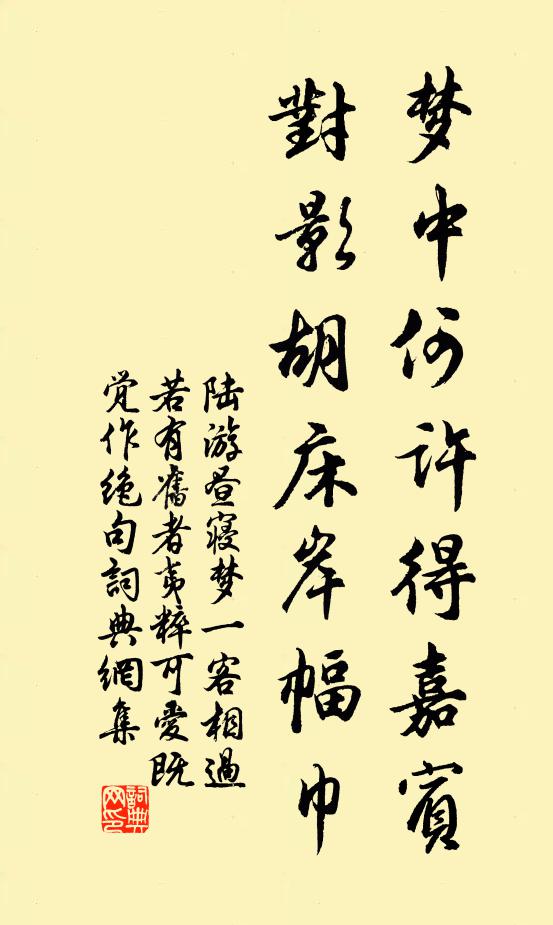 梦中何许得嘉賓
對影胡床岸幅巾
陆游昼寢梦一客相過
若有舊者夷粹可愛既
觉作绝句詞典網集
詞典
网印